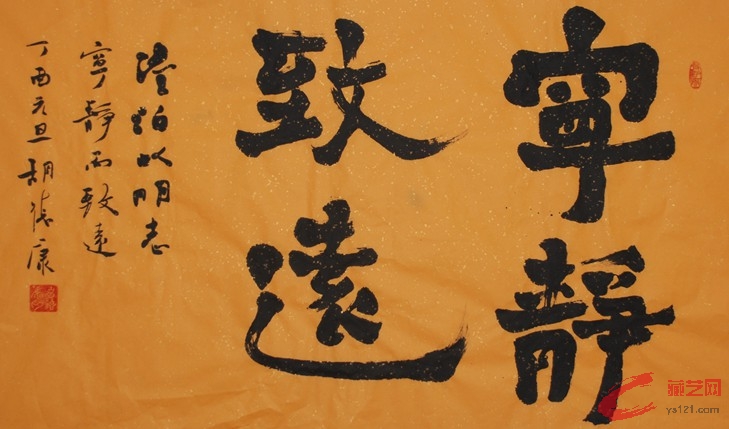 寧靜
致遠
澹泊以明志
寧靜而致遠
丁酉元旦胡德康
藏艺网
ys121.com